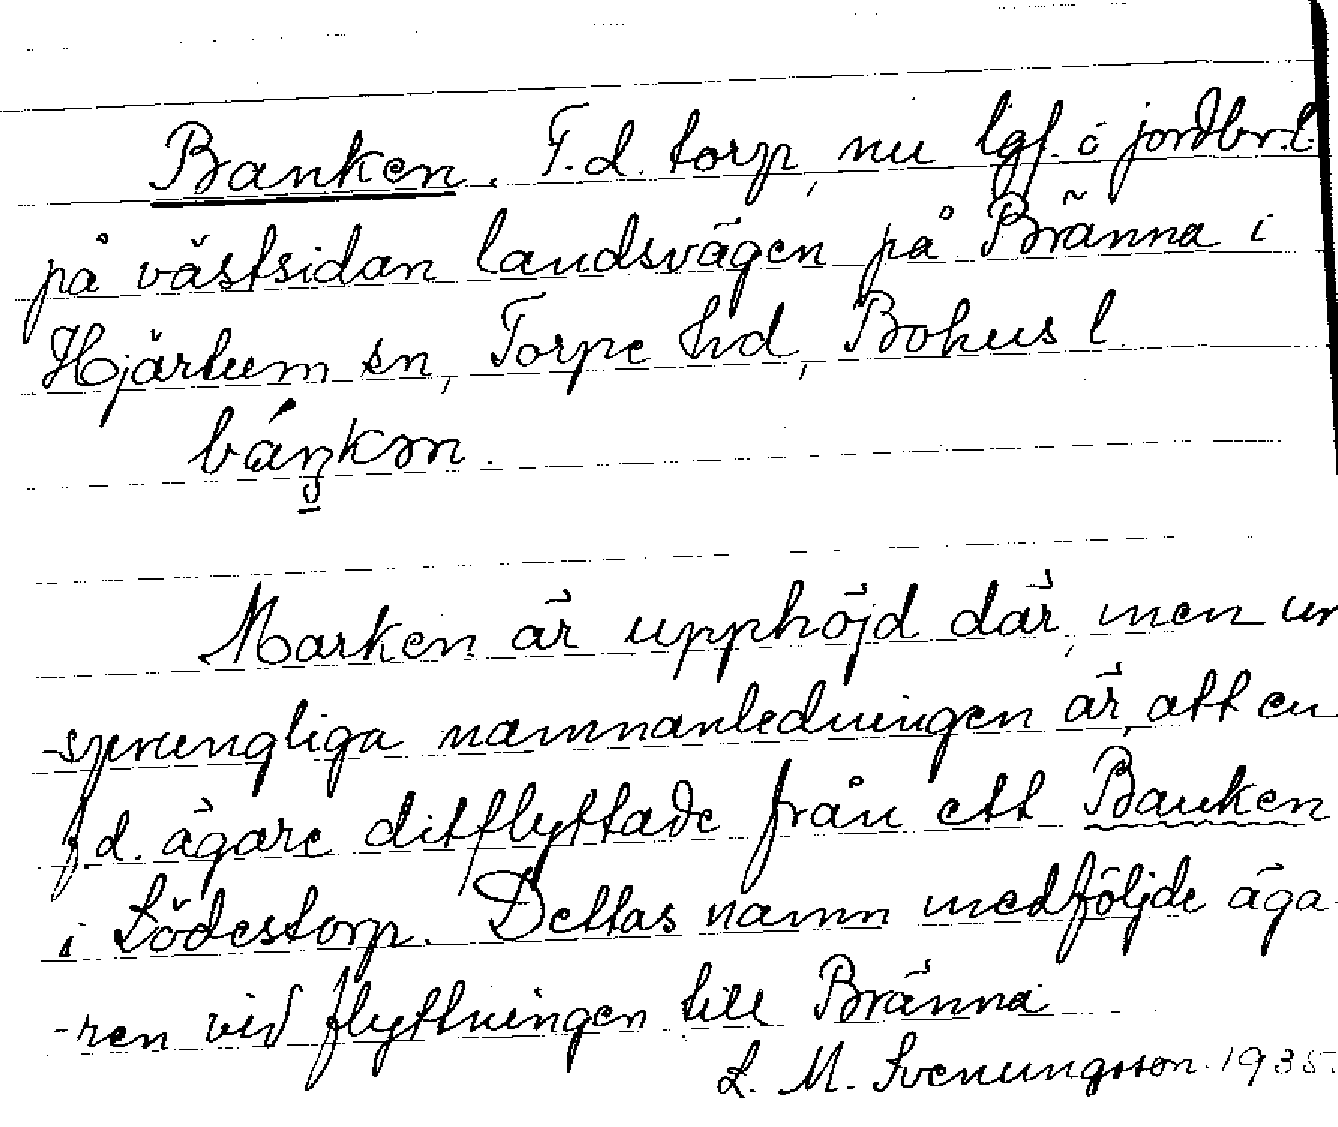 Banken. F.d. torp, nu lgf. o jordbr.l.
på västsidan landsvägen på Bränna i
Hjärtum sn, Torpe hd, Bohus l.
báŋkən.
Marken är upphöjd där, men ur
-sprungliga namnanledningen är, att en
f.d. ägare ditflyttade från ett Banken
i Södestorp. Dettas namn medföljde äga
-ren vid flyttningen till Bränna
L. M. Svenungsson. 1935.